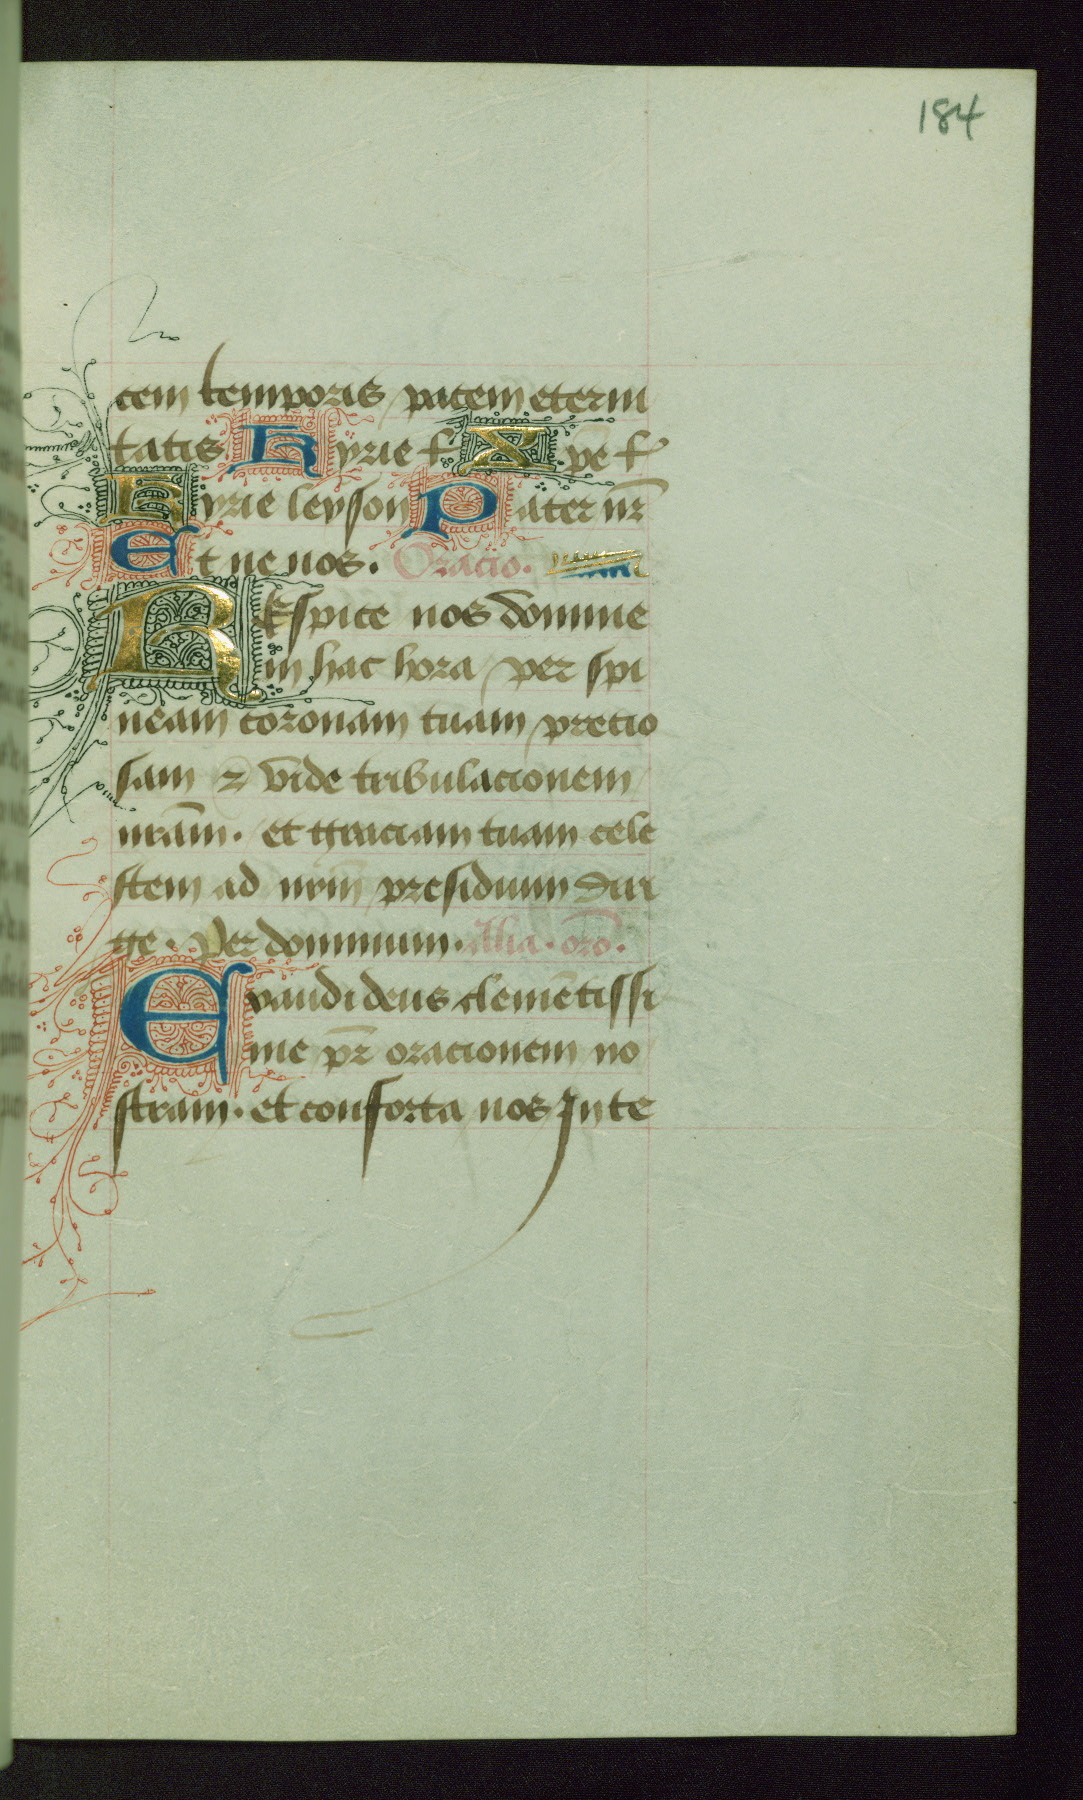 184
cem temporis pacem eterni
tatis Kyrie f Xpē f
Kyrie leyson Pater nr̄
Et ne nos. Oracio.
REspice nos domine
in hac hora per spi
neam coronam tuam precio
sam ⁊ vide tribulacionem
nrām. et graciam tuam cele
stem ad nrm̄ presidium diri
ge. Per dominum. Alia. oro.
Exaudi deus clemētissi
me pr̄ oracionem no
stram. et conforta nos In te